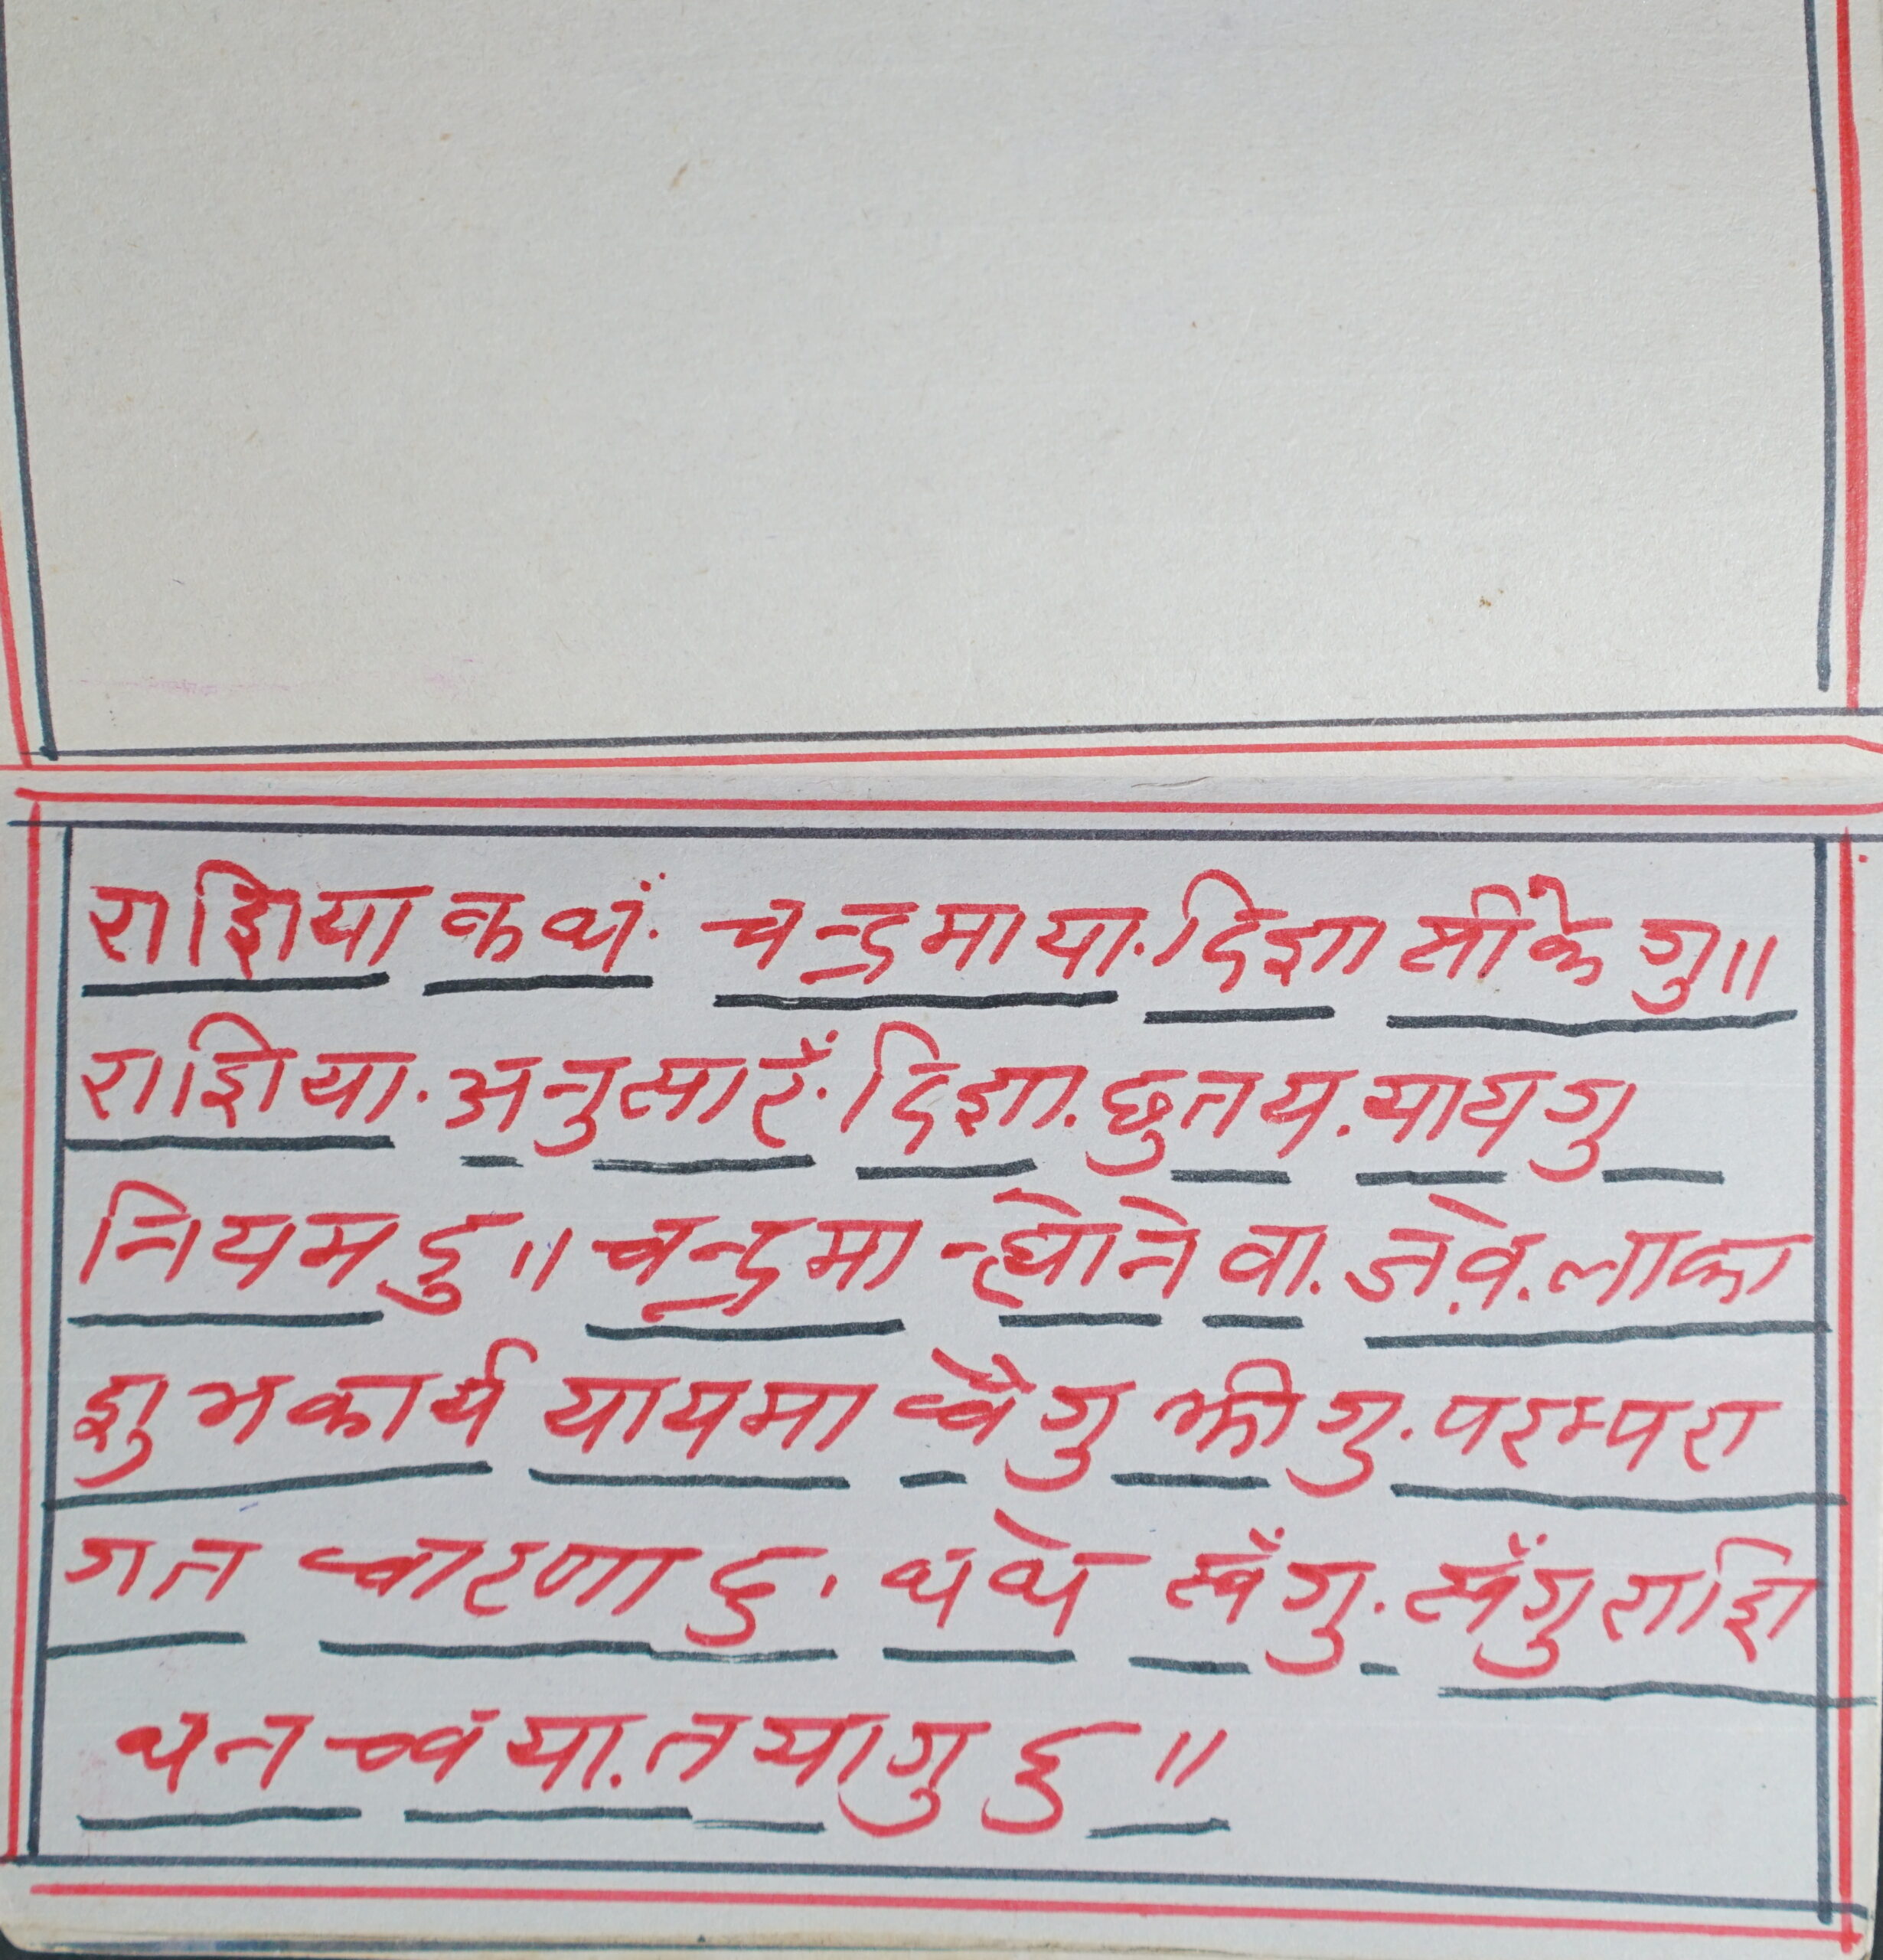 राशिया कथं. चन्द्रमाया. दिशा सींके गु॥
राशिया. अनुसारें. दिशा. छुतय. यायगु
नियम दु॥ चन्द्रमा न्ह्योने वा. जवं. लाका
शुभकार्य यायमा धैगु झीगु. परम्परा
गत धारणा दु. थथे स्वेंगु. स्वेंगु राशि
थन च्वंया. तयागु दु॥